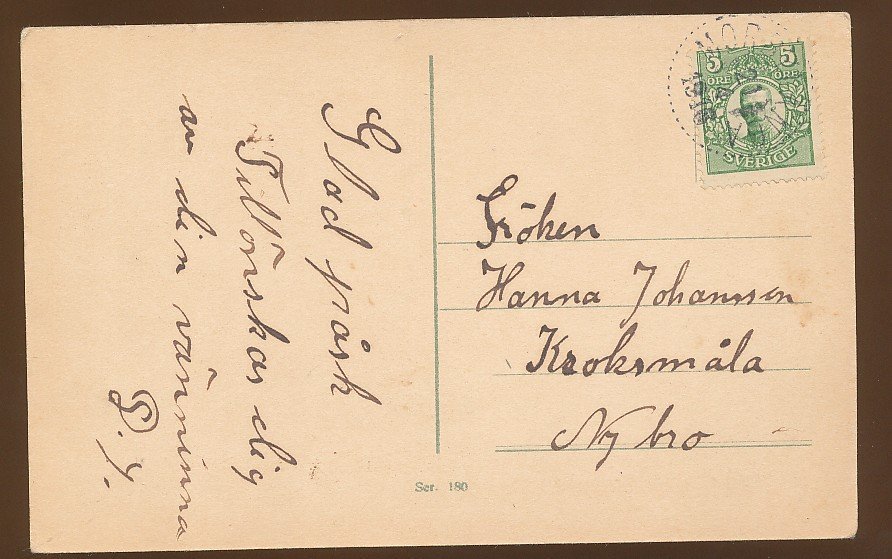 Glad påsk
Tillönskas dig
av din väninna
5 5
ÖRE ÖRE
SVERIGE
Fröken
Hanna Johansson
Kroksmåla
Nybro
Ser. 180